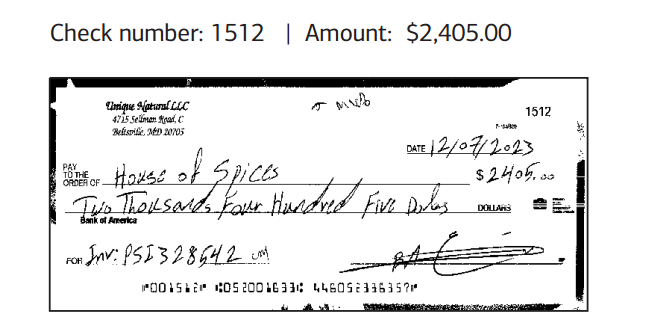 Check number: 1512 | Amount: $2,405.00
Unique Natural LLC
4715 Sellman Road, C
Beltsville, MD 20705
1512
DATE 12/07/2023
PAY TO THE ORDER OF House of Spices $2405.00
Two Thousands Four Hundred Five Dolas DOLLARS
Bank of America
FOR Inv: PSI328542